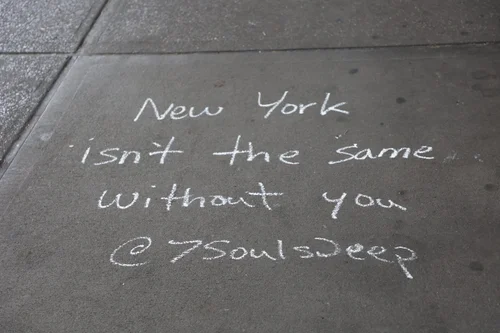 New York
isn't the same
without you
@7SoulsDeep